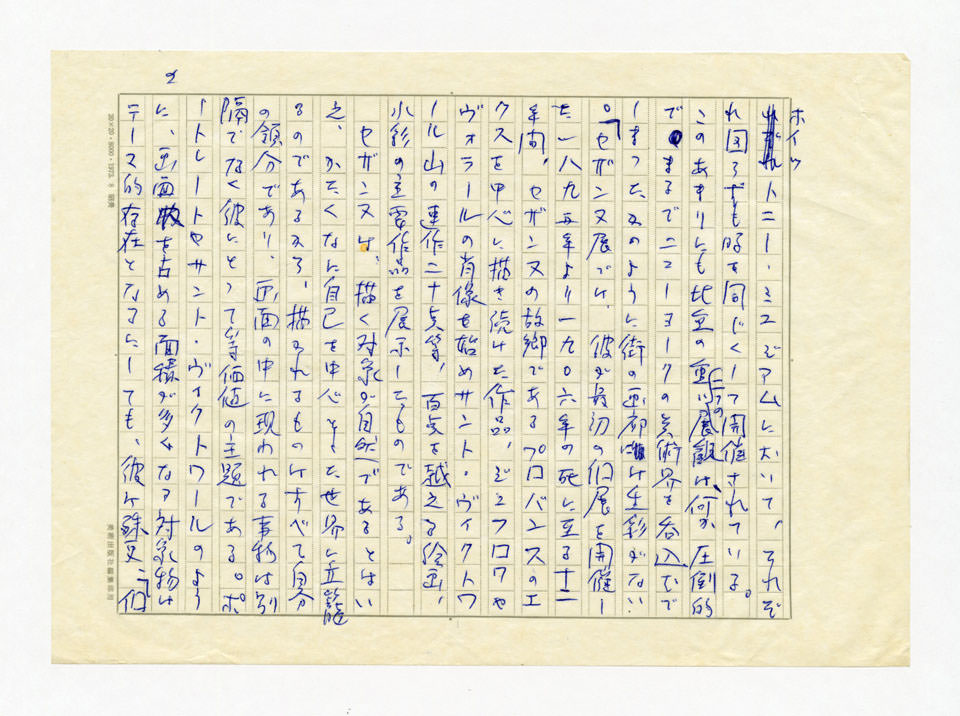 2
ホイットニー・ミュゼアムにおいて、それぞ
れ図らずも時を同じくして開催されている。
このあまりにも比重の重い二つの展観は、何か圧倒的
で、まるでニューヨークの美術界を呑込んで
しまったかのように街の画廊には生彩がない
。「セザンヌ展」では、彼が最初の個展を開催し
た一八九五年より一九〇六年の死に至る十一
年間、セザンヌの故郷であるプロバンスのエ
クスを中心に描き続けた作品、ジェフロワや
ヴォラールの肖像を始めサント・ヴィクトワ
ール山の連作二十点等、百点を越える絵画、
水彩の主要作品を展示したものである。
セザンヌは、描く対象が自然であるとはい
え、かたくなに自己を中心とした世界に立籠
るのであるから、描かれるものはすべて自分
の領分であり、画面の中に現われる事物は別
隔てなく彼にとって等価値の主題である。ポ
ートレートやサント・ヴィクトワールのよう
に、画面を占める面積が多くなり対象物は
テース的存在となるにしても、彼は殊更「個
20×20・8000・1973.8
美術出版社編集部用